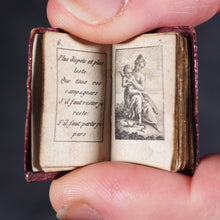 6.
Plus dispos et plus
leste
Que tous vos
campagnars
S'il faut rester je
reste
S'il faut partir je
pars